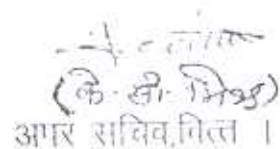 (के. सी. मिश्र)
अपर सचिव,वित्त ।